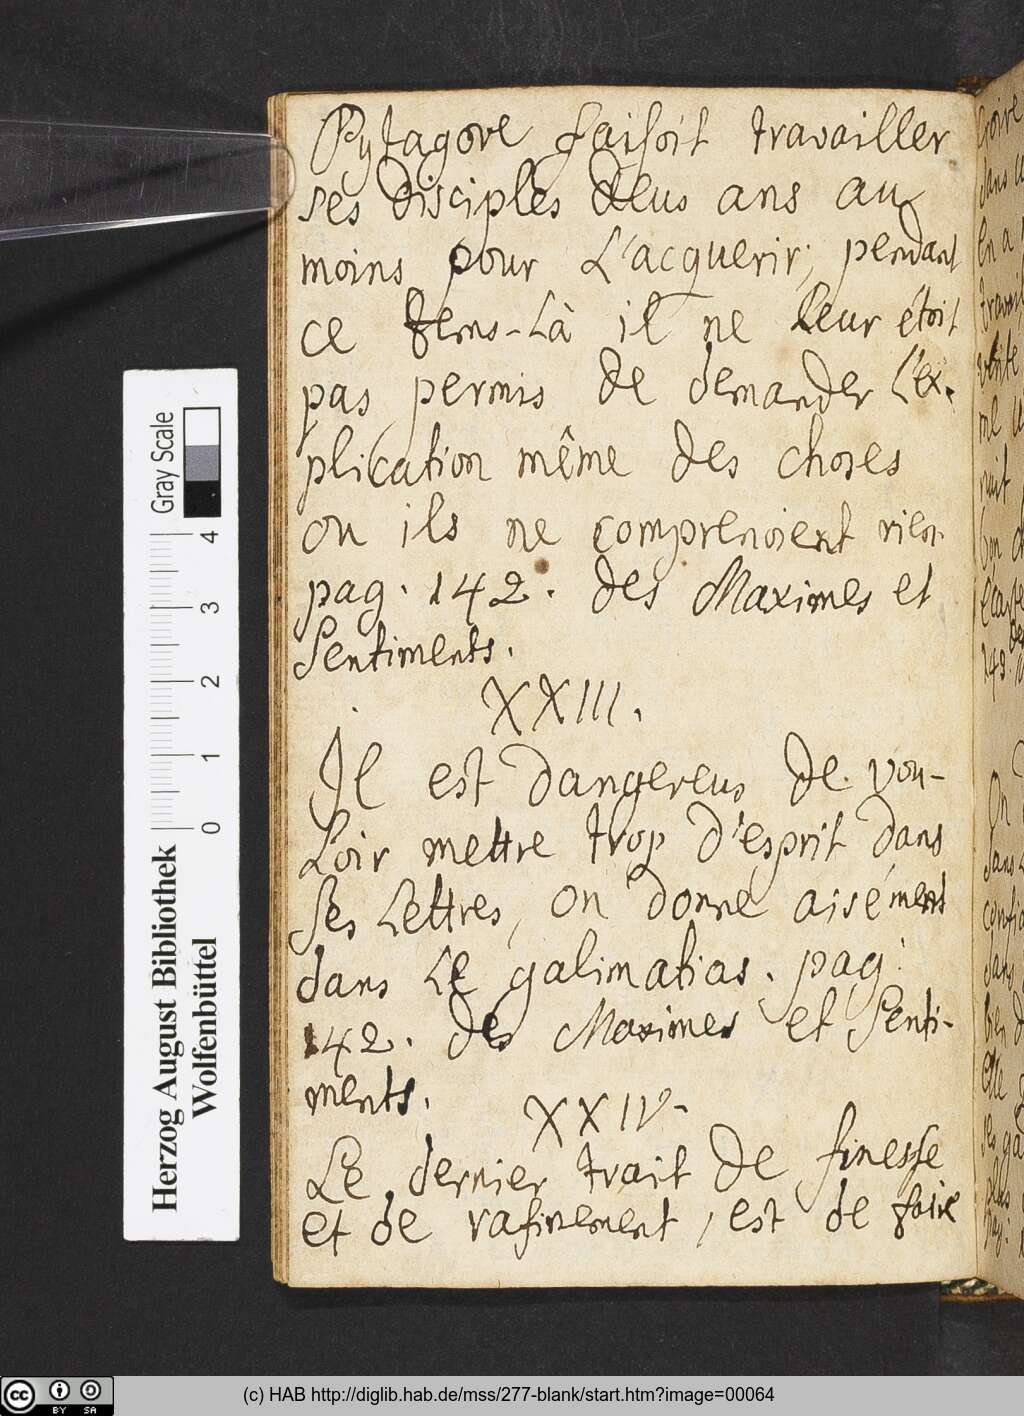 Pytagore faisoit travailler
ses disciples deus ans au
moins pour L'acquerir; pendant
ce tems-Là il ne leur étoit
pas permis de demander L'ex-
plication même des choses
ou ils ne comprenoient rien.
pag. 142. des Maximes et
Sentiments.
XXIII.
Il est dangereus de vou-
Loir mettre trop d'esprit dans
ses Lettres, on donne aisément
dans Le galimatias. pag:
142. des Maximes et Senti-
ments.
XXIV.
Le dernier trait de finesse
et de rafinement, est de faire
Gray Scale
0 1 2 3 4
Herzog August Bibliothek
Wolfenbüttel
cc BY SA
(c) HAB http://diglib.hab.de/mss/277-blank/start.htm?image=00064